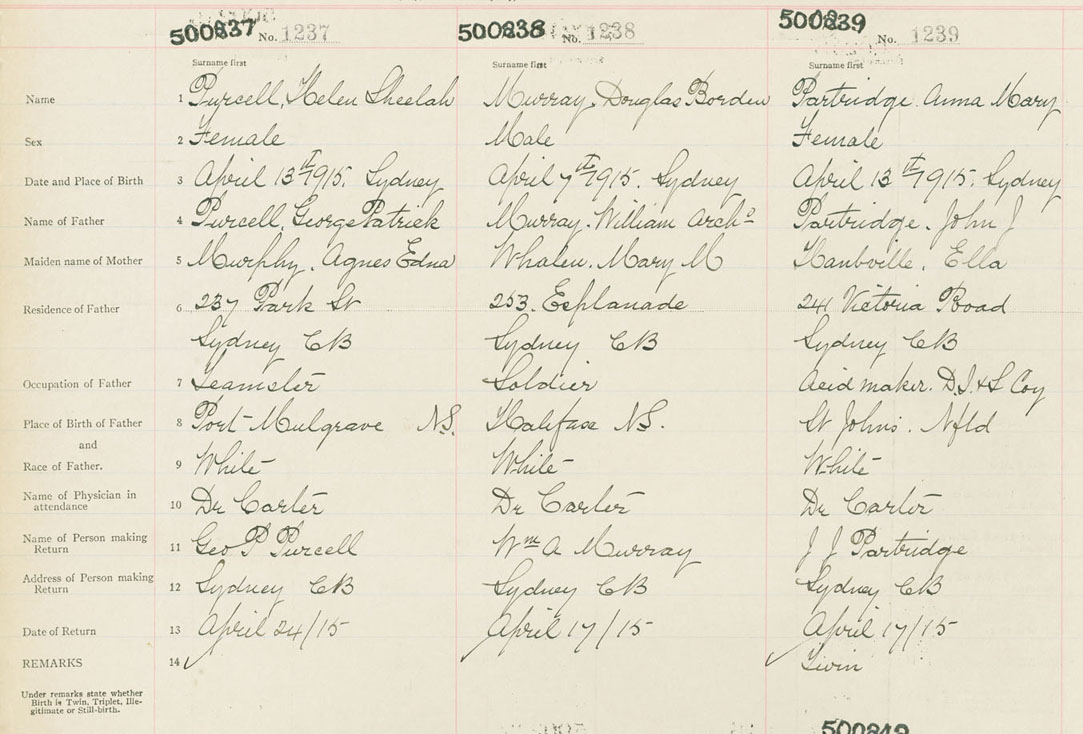 500837 No. 1237 500838 No. 1238 500839 No. 1239
Surname first Surname first Surname first
Name 1 Purcell, Helen Sheelah Murray. Douglas Borden Partridge. Anna Mary
Sex 2 Female Male Female
Date and Place of Birth 3 April 13th 1915. Sydney April 7th 1915. Sydney April 13th 1915. Sydney
Name of Father 4 Purcell, George Patrick Murray. William Archd Partridge. John J
Maiden name of Mother 5 Murphy. Agnes Edna Whalen. Mary M Ella
Residence of Father 6 237 Park St 253. Esplanade 241 Victoria Road
Sydney CB Sydney CB Sydney CB
Occupation of Father 7 Teamster Soldier Acid maker. D.I.&S Coy
Place of Birth of Father 8 Port Mulgrave N.S. Halifax N.S. St Johns. Nfld
and
Race of Father. 9 White White White
Name of Physician in
attendance 10 Dr Carter Dr Carter Dr Carter
Name of Person making
Return 11 Geo P Purcell Wm A Murray J J Partridge
Address of Person making
Return 12 Sydney CB Sydney CB Sydney CB
Date of Return 13 April 24/15 April 17/15 April 17/15
REMARKS 14 Twin
Under remarks state whether
Birth is Twin, Triplet, Ille-
gitimate or Still-birth.